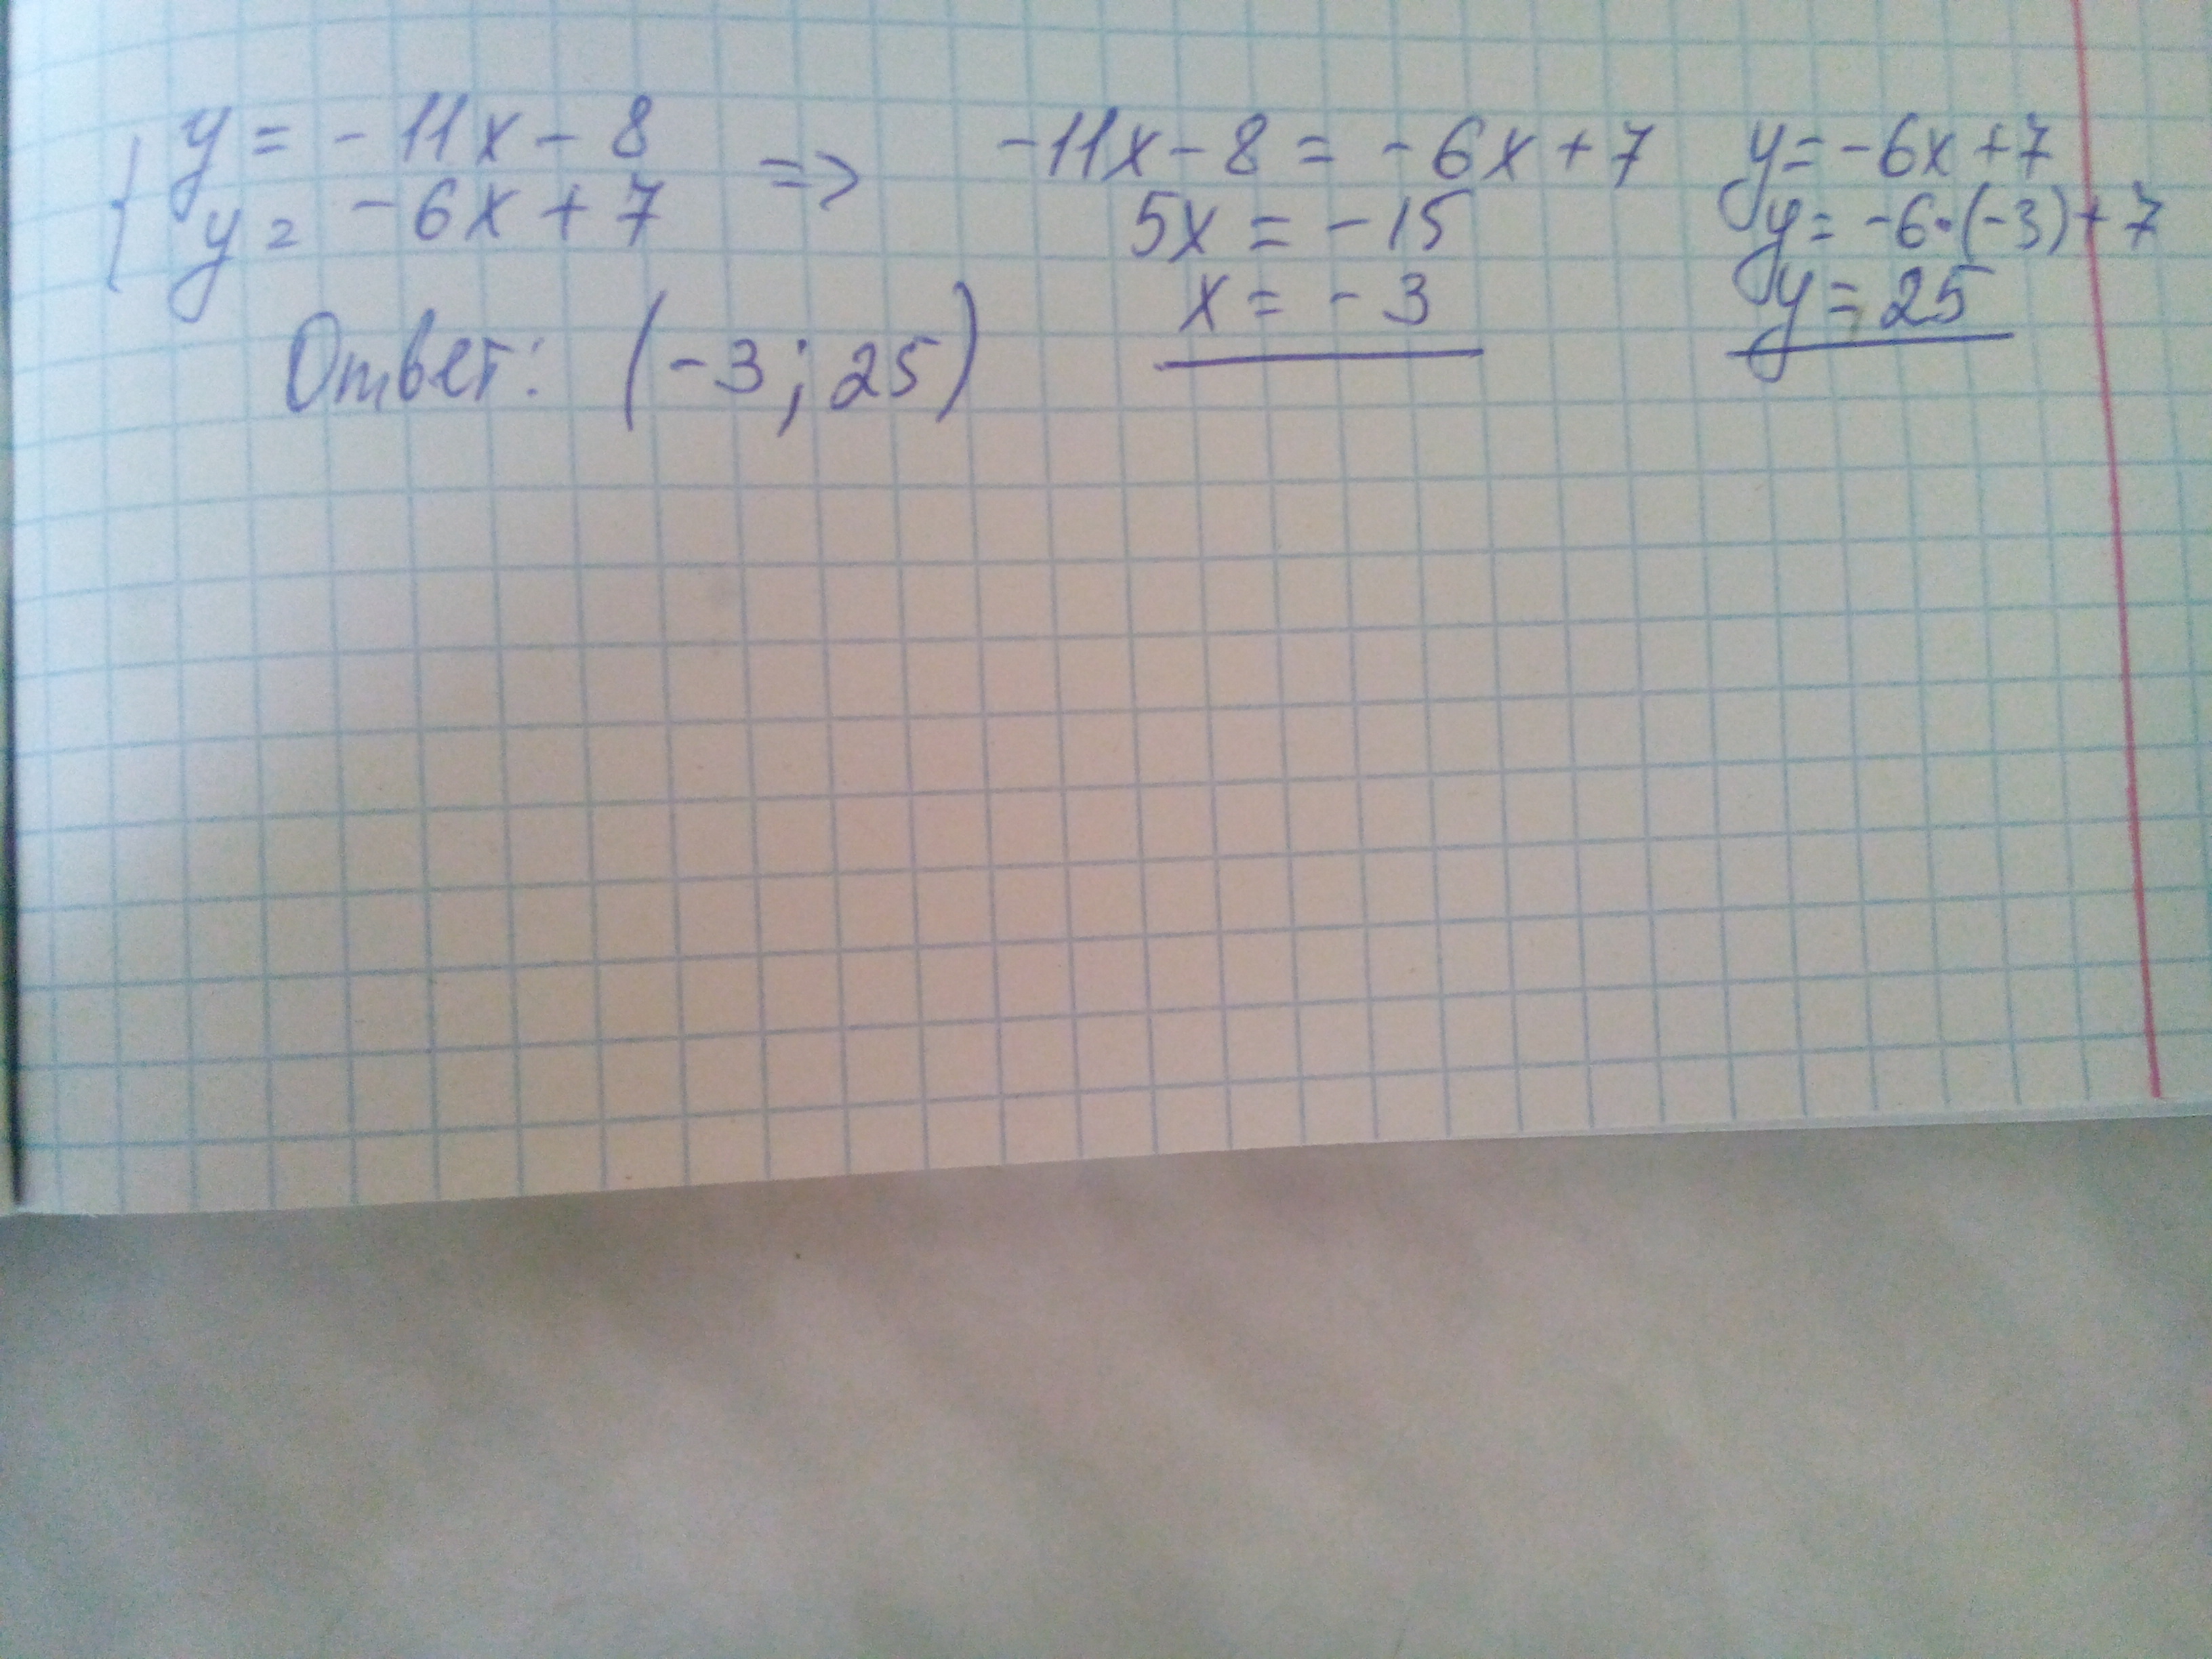 { y = -11x - 8
y = -6x + 7
=>
-11x - 8 = -6x + 7
5x = -15
x = -3
y = -6x + 7
y = -6·(-3) + 7
y = 25
Ответ: (-3; 25)